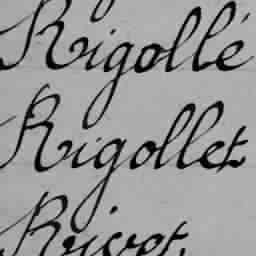 Rigollé
Rigollet
Rigot